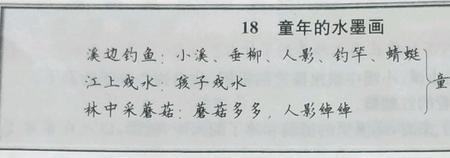 18 童年的水墨画
溪边钓鱼：小溪、垂柳、人影、钓竿、蜻蜓
江上戏水：孩子戏水
林中采蘑菇：蘑菇多多，人影绰绰
童